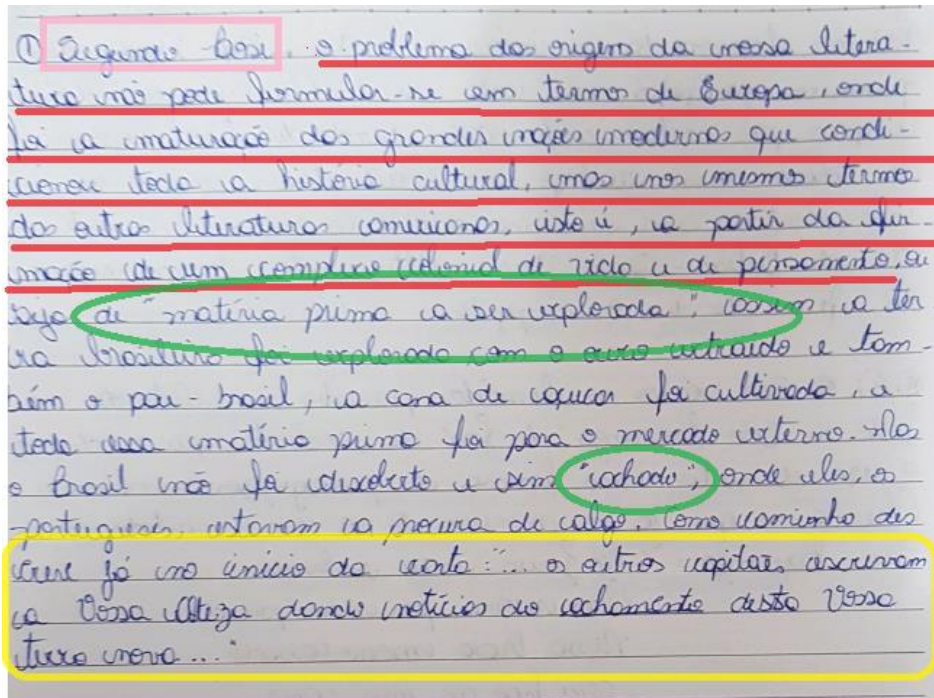 ① Segundo Bosi, o problema das origens da nossa litera-
tura não pode formular-se em termos de Europa, onde
foi a maturação das grandes nações modernas que condi-
cionou toda a história cultural, mas nos mesmos termos
das outras literaturas americanas, isto é, a partir da afir-
mação de um complexo colonial de vida e de pensamento, ou
seja de "matéria prima a ser explorada", assim a ter
ra brasileira foi explorada com o ouro extraído e tam-
bém o pau-brasil, a cana de açucar foi cultivada, e
toda essa matéria prima foi para o mercado externo. Mas
o Brasil não foi descoberto e sim "achado", onde eles, os
portugueses, estavam a procura de algo. Como caminha des
creve já no início da carta: "... os outros capitães escrevam
a Vossa Alteza dando notícias do achamento desta Vossa
terra nova..."